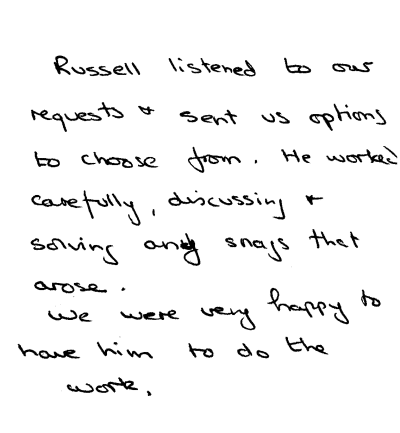 Russell listened to our
requests & sent us options
to choose from. He worked
carefully, discussing &
solving any snags that
arose.
We were very happy to
have him to do the
work.